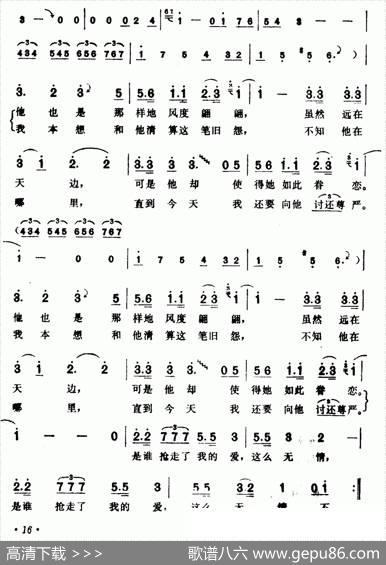 3 - 0 0 0 0 2 4 1 - 0 1 7 6 0 5 1
434 545 656 767 1 7 5 4 3 2 1 5 5 6.
3. 2 3 5 5.6 1.1 2 3 1 1 - 3.3 3.3
他 也 是 那 样地 风度 翩 翩， 虽然 远在
我 本 想 和 他清 算这 笔旧 怨， 不知 他在
3 1 2. 2 3.3 3.3 0 5 5.6 1.1 2.3 1
天 边， 可是 他却 使 得她 如此 眷 恋。
哪 里， 直到 今天 我 还要 向他 讨还尊严。
(434 545 656 767
1 - 0 0 1 7 5 4 3 2 1 5 5 6.)
3. 2 3 5 5.6 1.1 2 3 1 1 - 3.3 3.3
他 也 是 那 样地 风度 翩 翩， 虽然 远在
我 本 想 和 他清 算这 笔旧 怨， 不知 他在
3 1 2. 2 3.3 3.3 0 5 5.6 1.1 2.3 1
天 边， 可是 他却 使 得她 如此 眷 恋。
哪 里， 直到 今天 我 还要 向他 讨还尊严。
1 - - 0 2.2 777 5.5 3 5.5 3.3 3 2 -
是谁 抢走了 我的 爱，这么 无 情，
2.2 777 5.5 3 5.5 3.2 1 0 1 :
是谁 抢走了 我的 爱， 这么 无 情 不
· 16 ·
高清下载 >>>
歌谱八六 www.gepu86.com